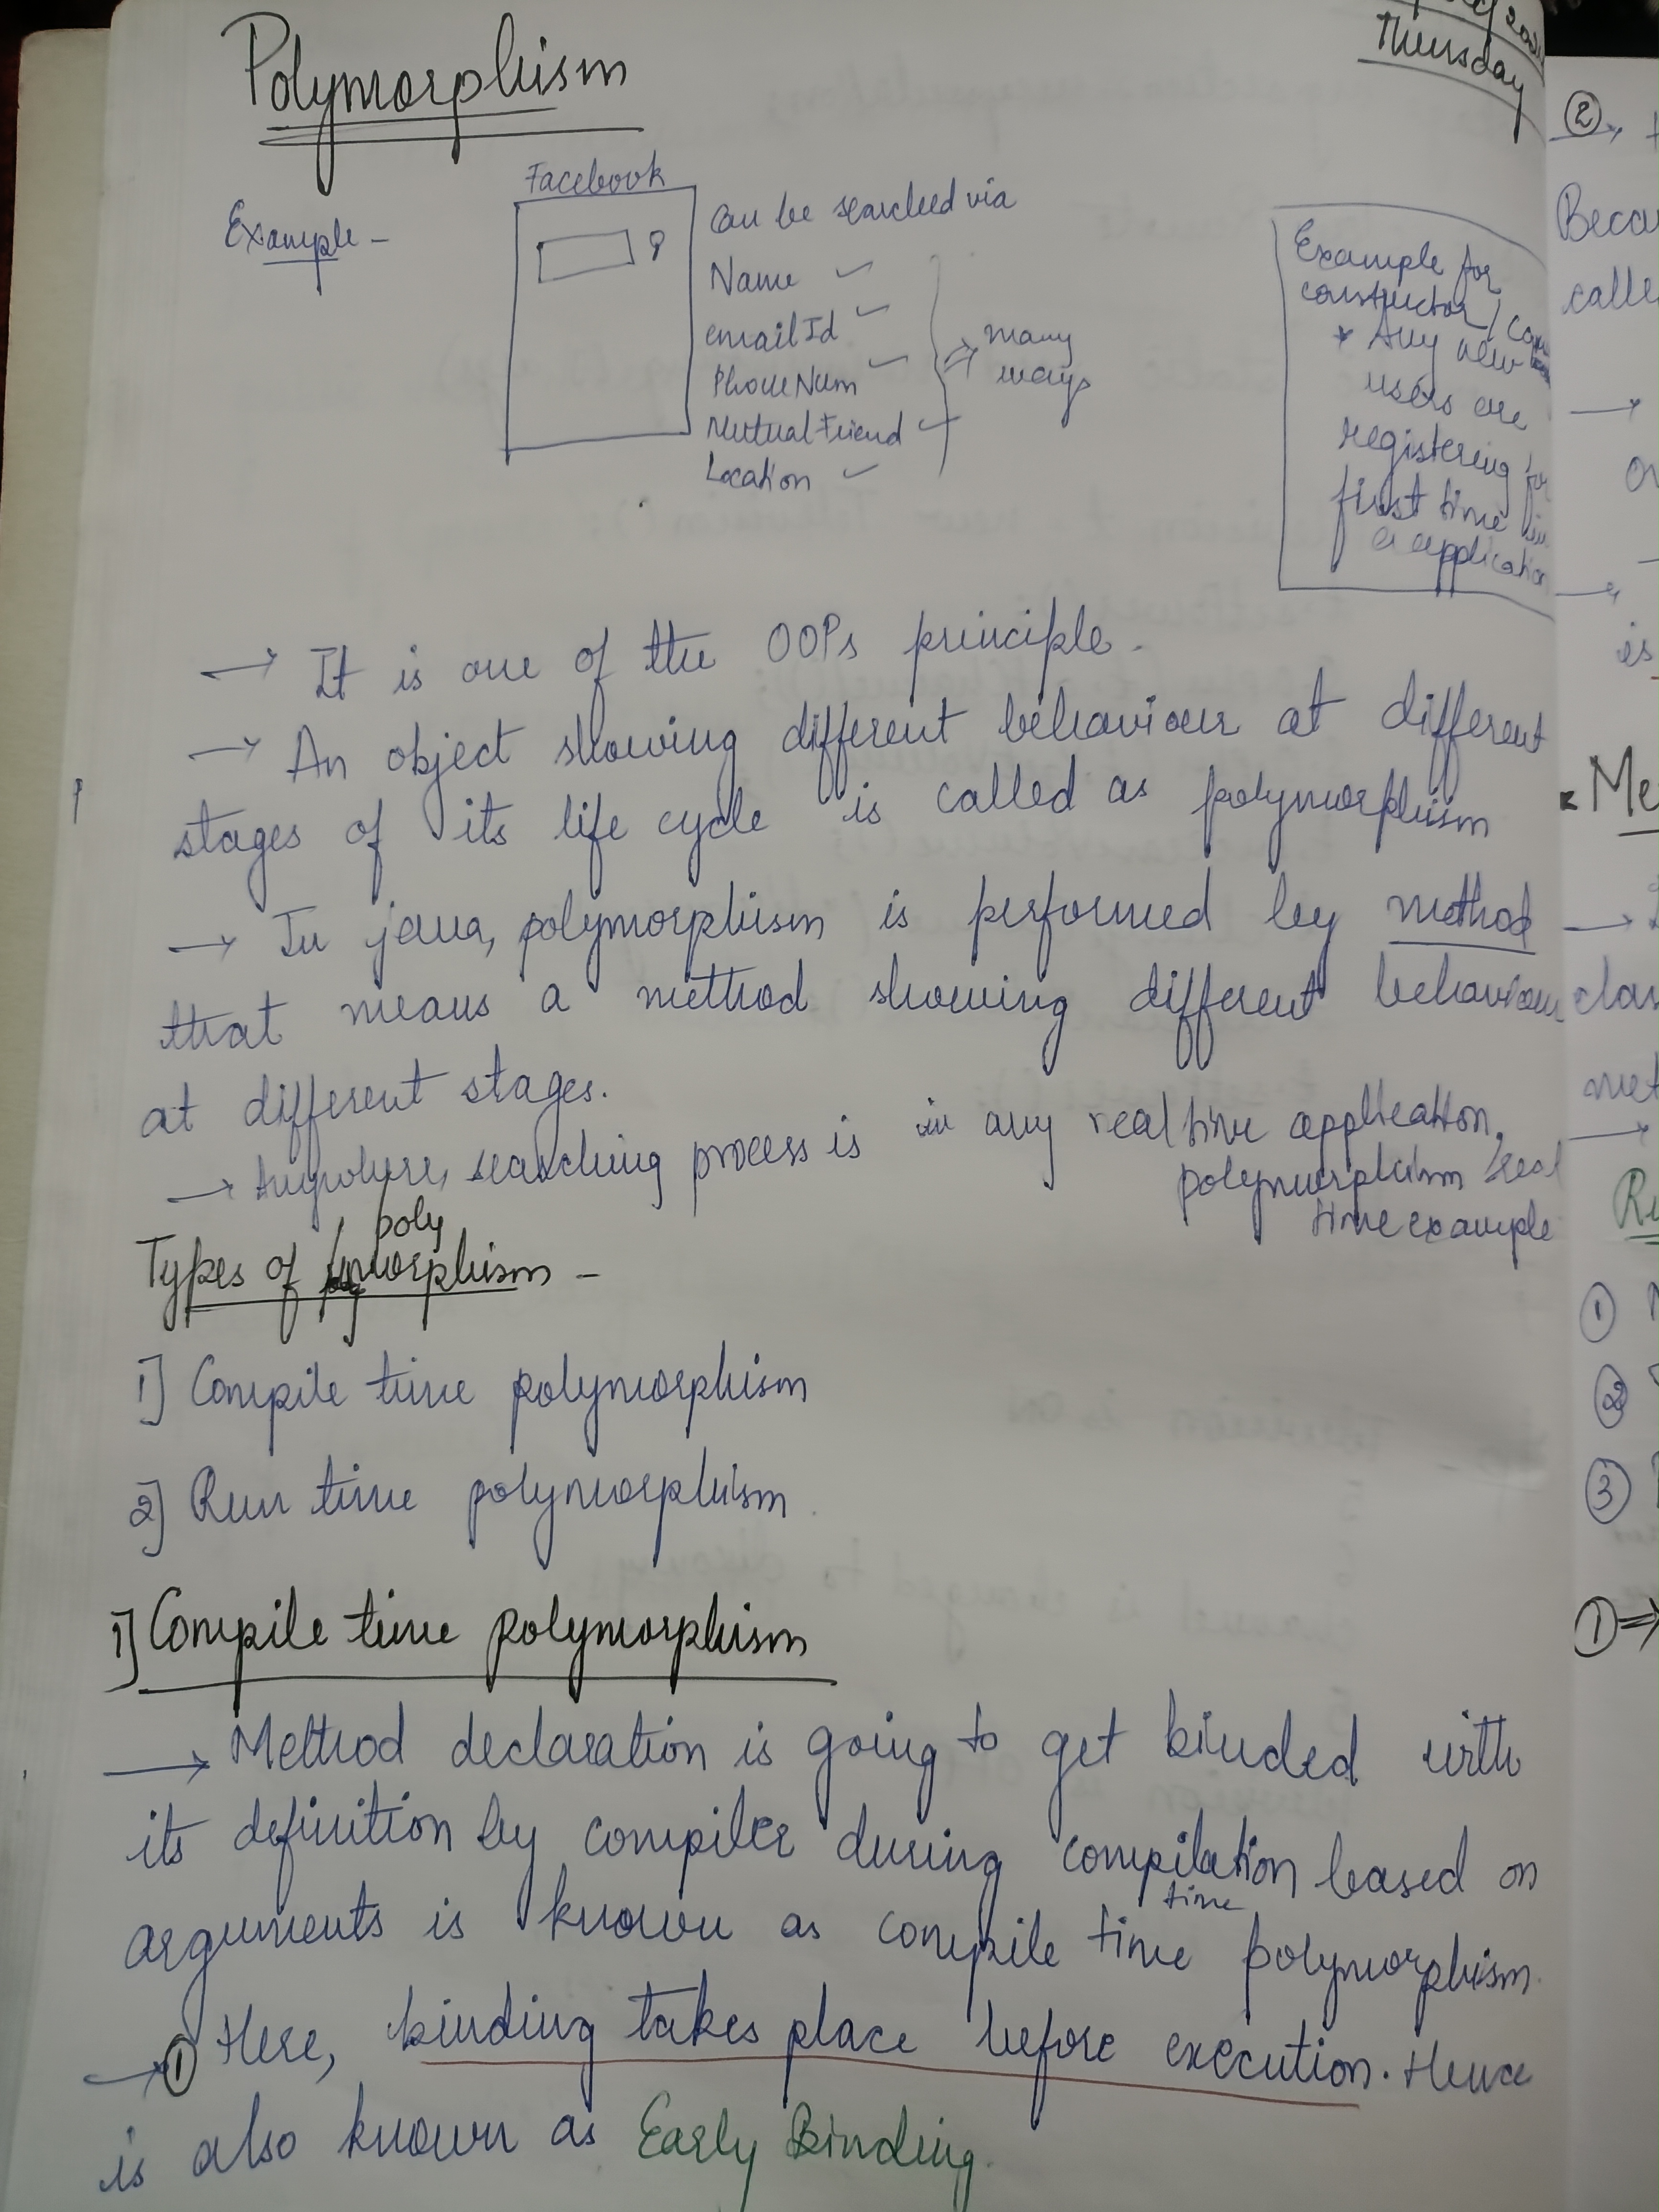 Thursday
Polymorphism
Example -
Facebook
Can be searched via
Name
email Id
PhoneNum
Mutual Friend
Location
⇒ many
ways
Example for
constructor/
* Any new
users are
registering for
first time in
a application
→ It is one of the OOPs principle.
→ An object showing different behaviour at different
stages of its life cycle is called as polymorphism
→ In java, polymorphism is performed by method
that means a method showing different behaviour
at different stages.
→ Anywhere, searching process is in any real time application,
polymorphism real
time example
poly
Types of morphism -
1] Compile time polymorphism
2] Run time polymorphism
1] Compile time polymorphism
→ Method declaration is going to get binded with
its definition by compiler during compilation based on
time
arguments is known as compile time polymorphism.
→ ① Here, binding takes place before execution. Hence
is also known as Early Binding.
②
→
Beca
calle
→
→
is
Me
→
clas
met
→
①
②
③
① ⇒